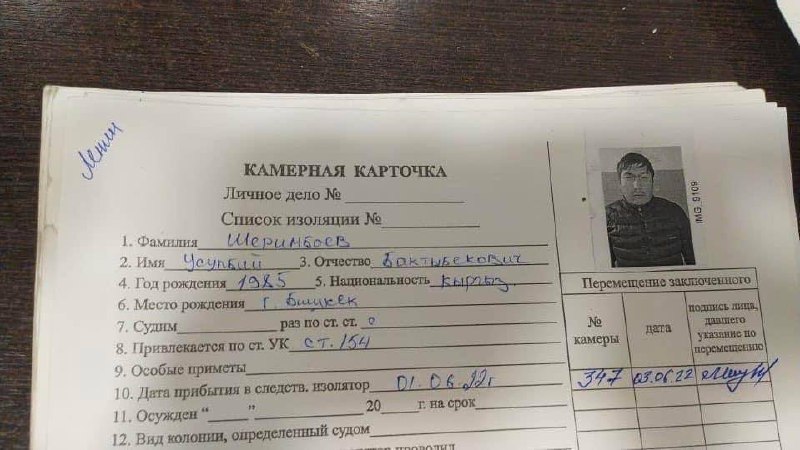 КАМЕРНАЯ КАРТОЧКА
Личное дело №
Список изоляции №
1. Фамилия Шеринбоев
2. Имя Усупбий 3. Отчество Бактыбекович
4. Год рождения 1985 5. Национальность Кыргыз
6. Место рождения г. Бишкек
7. Судим раз по ст. ст. 0
8. Привлекается по ст. УК ст. 154
9. Особые приметы
10. Дата прибытия в следств. изолятор 01.06.22г
11. Осужден “ ” 20 г. на срок
12. Вид колонии, определенный судом
IMG_9109
Перемещение заключенного
№ камеры
дата
подпись лица, давшего указание по перемещению
347 03.06.22